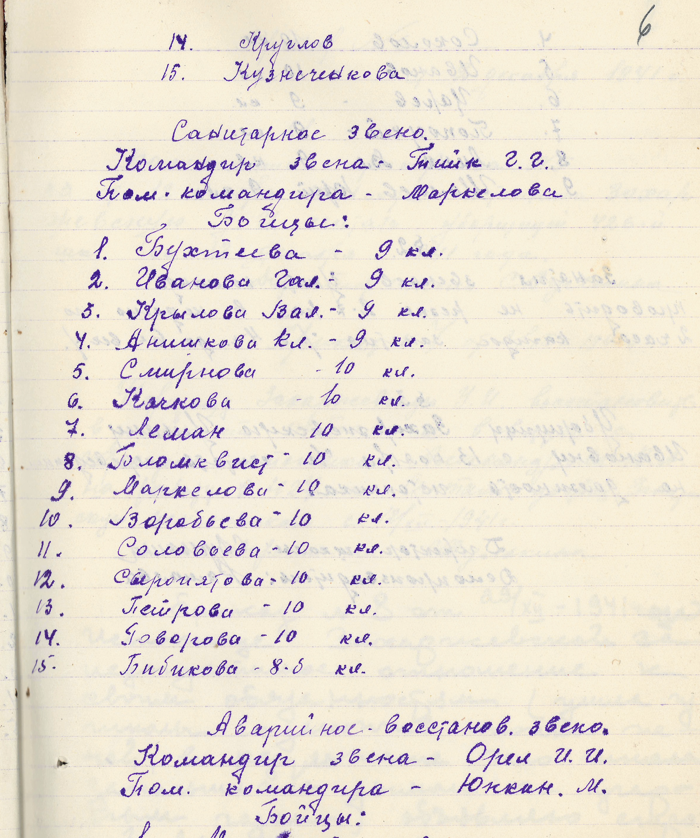 6
14. Круглов
15. Кузнеченкова
Санитарное звено.
Командир звена - Тийк Г. Г.
Пом. командира - Маркелова
Бойцы:
1. Бухтеева - 9 кл.
2. Иванова Гал. - 9 кл.
3. Крылова Вал. - 9 кл.
4. Анишкова Кл. - 9 кл.
5. Смирнова - 10 кл.
6. Качкова - 10 кл.
7. Леман - 10 кл.
8. Бломквист - 10 кл.
9. Маркелова - 10 кл.
10. Воробьева - 10 кл.
11. Соловьева - 10 кл.
12. Сыропятова - 10 кл.
13. Петрова - 10 кл.
14. Говорова - 10 кл.
15. Бибикова - 8-б кл.
Аварийное-восстанов. звено.
Командир звена - Орел И. И.
Пом. командира - Юнкин. М.
Бойцы: